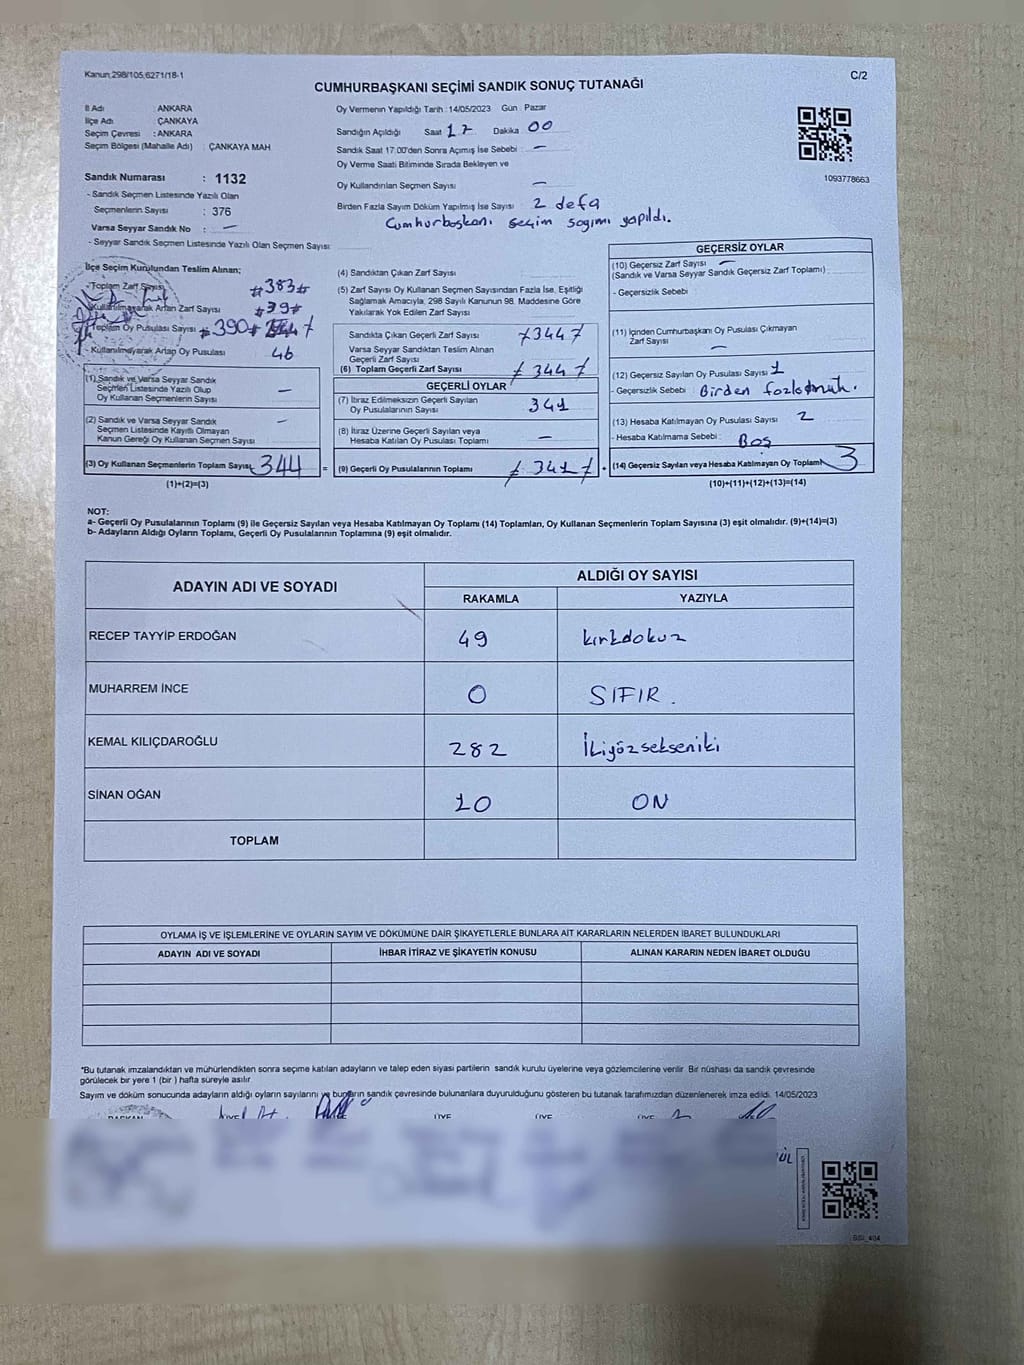 Kanun,298/105,6271/18-1
C/2
CUMHURBAŞKANI SEÇİMİ SANDIK SONUÇ TUTANAĞI
İl Adı : ANKARA
İlçe Adı : ÇANKAYA
Seçim Çevresi : ANKARA
Seçim Bölgesi (Mahalle Adı) : ÇANKAYA MAH
Sandık Numarası : 1132
- Sandık Seçmen Listesinde Yazılı Olan
Seçmenlerin Sayısı : 376
Varsa Seyyar Sandık No : —
- Seyyar Sandık Seçmen Listesinde Yazılı Olan Seçmen Sayısı:
Oy Vermenin Yapıldığı Tarih : 14/05/2023 Gün : Pazar
Sandığın Açıldığı Saat 17 Dakika 00
Sandık Saat 17:00'den Sonra Açımış İse Sebebi : —
Oy Verme Saati Bitiminde Sırada Bekleyen ve
Oy Kullandırılan Seçmen Sayısı —
Birden Fazla Sayım Döküm Yapılmış İse Sayısı : 2 defa
Cumhurbaşkanı seçim sayımı yapıldı.
1093778663
İlçe Seçim Kurulundan Teslim Alınan;
- Toplam Zarf Sayısı #383#
- Kullanılmayarak Artan Zarf Sayısı #39#
- Toplam Oy Pusulası Sayısı #390#
- Kullanılmayarak Artan Oy Pusulası 46
(1) Sandık ve Varsa Seyyar Sandık
Seçmen Listesinde Yazılı Olup
Oy Kullanan Seçmenlerin Sayısı —
(2) Sandık ve Varsa Seyyar Sandık
Seçmen Listesinde Kayıtlı Olmayan
Kanun Gereği Oy Kullanan Seçmen Sayısı —
(3) Oy Kullanan Seçmenlerin Toplam Sayısı 344 =
(1)+(2)=(3)
(4) Sandıktan Çıkan Zarf Sayısı
(5) Zarf Sayısı Oy Kullanan Seçmen Sayısından Fazla İse, Eşitliği
Sağlamak Amacıyla, 298 Sayılı Kanunun 98. Maddesine Göre
Yakılarak Yok Edilen Zarf Sayısı
Sandıkta Çıkan Geçerli Zarf Sayısı ≠344≠
Varsa Seyyar Sandıktan Teslim Alınan
Geçerli Zarf Sayısı
(6) Toplam Geçerli Zarf Sayısı ≠344≠
GEÇERLİ OYLAR
(7) İtiraz Edilmeksizin Geçerli Sayılan
Oy Pusulalarının Sayısı 341
(8) İtiraz Üzerine Geçerli Sayılan veya
Hesaba Katılan Oy Pusulası Toplamı —
(9) Geçerli Oy Pusulalarının Toplamı ≠341≠ +
GEÇERSİZ OYLAR
(10) Geçersiz Zarf Sayısı —
(Sandık ve Varsa Seyyar Sandık Geçersiz Zarf Toplamı)
- Geçersizlik Sebebi
(11) İçinden Cumhurbaşkanı Oy Pusulası Çıkmayan
Zarf Sayısı —
(12) Geçersiz Sayılan Oy Pusulası Sayısı 1
- Geçersizlik Sebebi : Birden fazla mühür.
(13) Hesaba Katılmayan Oy Pusulası Sayısı 2
- Hesaba Katılmama Sebebi : Boş
(14) Geçersiz Sayılan veya Hesaba Katılmayan Oy Toplamı 3
(10)+(11)+(12)+(13)=(14)
NOT:
a- Geçerli Oy Pusulalarının Toplamı (9) ile Geçersiz Sayılan veya Hesaba Katılmayan Oy Toplamı (14) Toplamları, Oy Kullanan Seçmenlerin Toplam Sayısına (3) eşit olmalıdır. (9)+(14)=(3)
b- Adayların Aldığı Oyların Toplamı, Geçerli Oy Pusulalarının Toplamına (9) eşit olmalıdır.
ADAYIN ADI VE SOYADI ALDIĞI OY SAYISI
RAKAMLA YAZIYLA
RECEP TAYYİP ERDOĞAN 49 kırkdokuz
MUHARREM İNCE 0 SIFIR.
KEMAL KILIÇDAROĞLU 282 İkiyözsekseniki
SİNAN OĞAN 10 ON
TOPLAM
OYLAMA İŞ VE İŞLEMLERİNE VE OYLARIN SAYIM VE DÖKÜMÜNE DAİR ŞİKAYETLERLE BUNLARA AİT KARARLARIN NELERDEN İBARET BULUNDUKLARI
ADAYIN ADI VE SOYADI İHBAR İTİRAZ VE ŞİKAYETİN KONUSU ALINAN KARARIN NEDEN İBARET OLDUĞU
*Bu tutanak imzalandıktan ve mühürlendikten sonra seçime katılan adayların ve talep eden siyasi partilerin sandık kurulu üyelerine veya gözlemcilerine verilir. Bir nüshası da sandık çevresinde
görülecek bir yere 1 (bir ) hafta süreyle asılır
Sayım ve döküm sonucunda adayların aldığı oyların sayılarını ve bunların sandık çevresinde bulunanlara duyurulduğunu gösteren bu tutanak tarafımızdan düzenlenerek imza edildi. 14/05/2023
BAŞKAN ÜYE ÜYE ÜYE
BSI_404